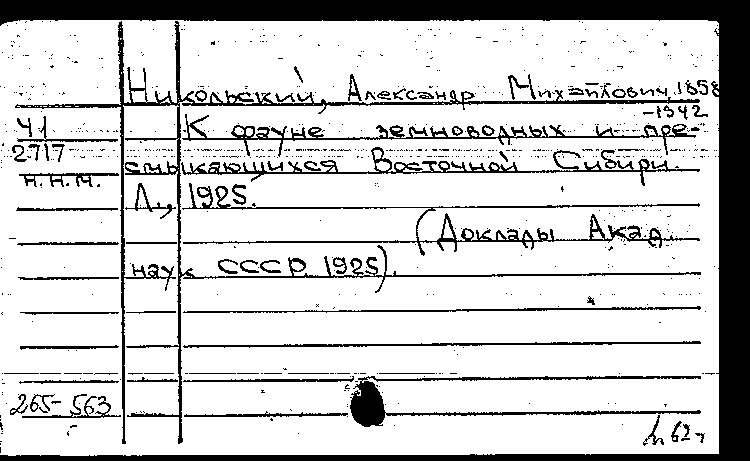 Никольский, Александр Михайлович, 1858
-1942
Ч1 К фауне земноводных и пре-
2717 смыкающихся Восточной Сибири.
н.н.м. Л., 1925.
(Доклады Акад.
наук СССР. 1925).
265-563